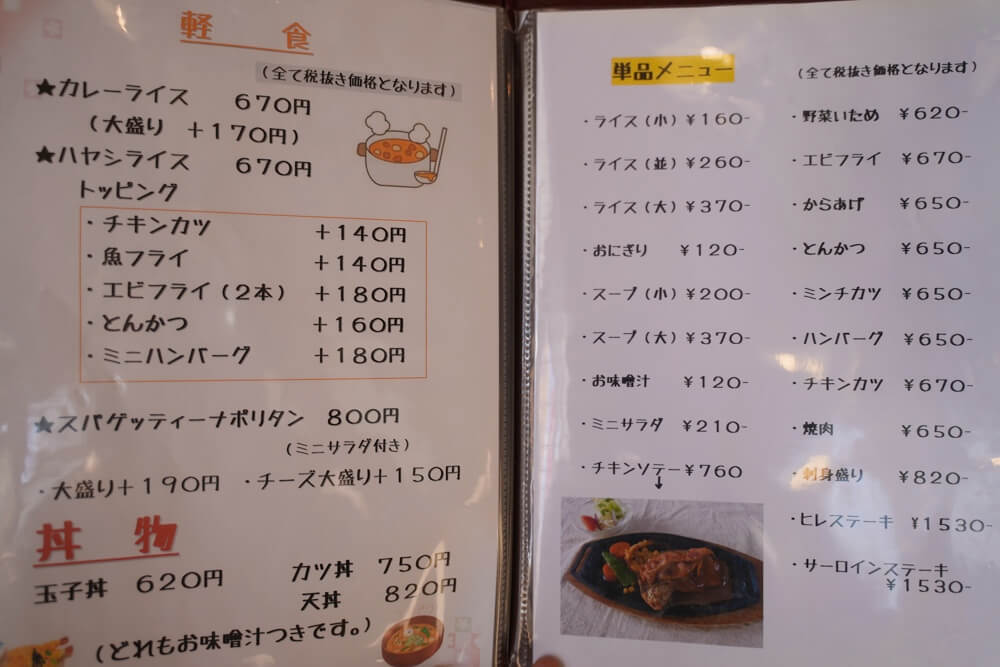 軽 食
(全て税抜き価格となります)
★カレーライス 670円
(大盛り +170円)
★ハヤシライス 670円
トッピング
・チキンカツ +140円
・魚フライ +140円
・エビフライ(2本) +180円
・とんかつ +160円
・ミニハンバーグ +180円
★スパゲッティーナポリタン 800円
(ミニサラダ付き)
・大盛り+190円 ・チーズ大盛り+150円
丼 物
玉子丼 620円
カツ丼 750円
天丼 820円
(どれもお味噌汁つきです。)
単品メニュー
(全て税抜き価格となります)
・ライス(小)¥160-
・ライス(並)¥260-
・ライス(大)¥370-
・おにぎり ¥120-
・スープ(小)¥200-
・スープ(大)¥370-
・お味噌汁 ¥120-
・ミニサラダ ¥210-
・チキンソテー¥760
↓
・野菜いため ¥620-
・エビフライ ¥670-
・からあげ ¥650-
・とんかつ ¥650-
・ミンチカツ ¥650-
・ハンバーグ ¥650-
・チキンカツ ¥670-
・焼肉 ¥650-
・刺身盛り ¥820-
・ヒレステーキ ¥1530-
・サーロインステーキ
¥1530-